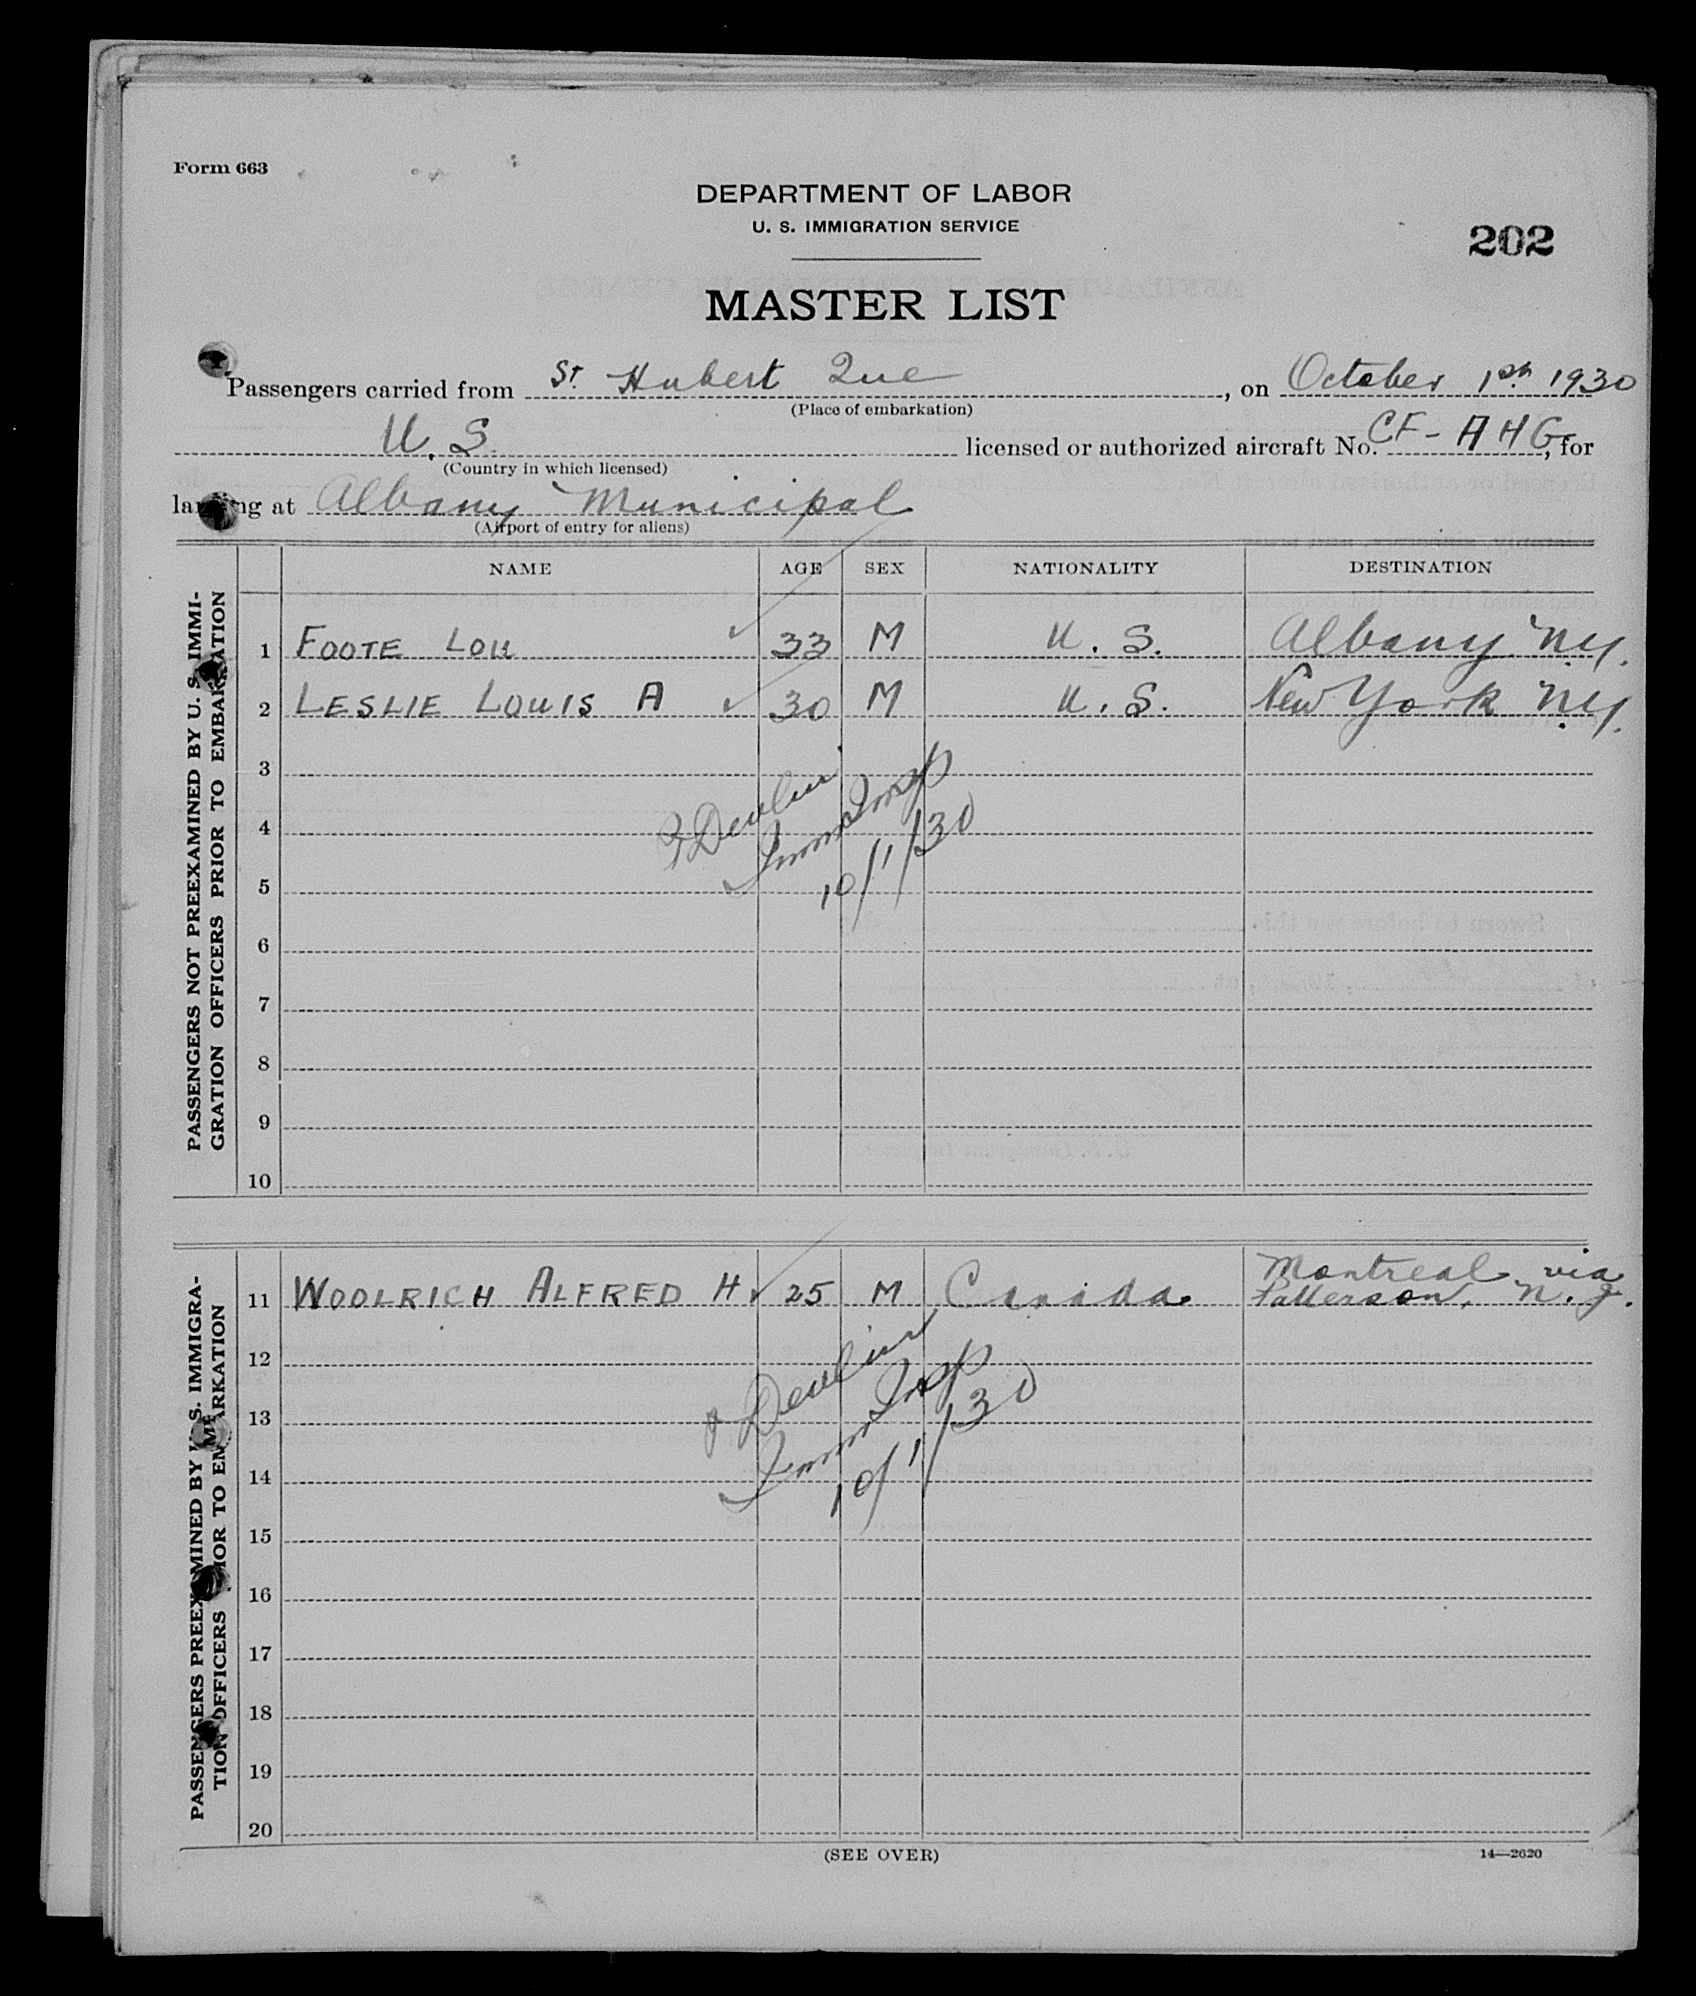 Form 663
DEPARTMENT OF LABOR
U. S. IMMIGRATION SERVICE
202
MASTER LIST
Passengers carried from St. Hubert Que, on October 1st 1930
(Place of embarkation)
U. S. licensed or authorized aircraft No. CF-AHG, for
(Country in which licensed)
landing at Albany Municipal
(Airport of entry for aliens)
NAME AGE SEX NATIONALITY DESTINATION
PASSENGERS NOT PREEXAMINED BY U. S. IMMI-
GRATION OFFICERS PRIOR TO EMBARKATION
1 FOOTE LOU 33 M U. S. Albany N.Y.
2 LESLIE LOUIS A 30 M U. S. New York N.Y.
3
4
5
6
7
8
9
10
Devlin
Imm Insp
10/1/30
PASSENGERS PREEXAMINED BY U. S. IMMIGRA-
TION OFFICERS PRIOR TO EMBARKATION
Montreal via
11 WOOLRICH ALFRED H 25 M Canada Patterson, N. J.
12
13
14
15
16
17
18
19
20
Devlin
Imm Insp
10/1/30
(SEE OVER)
14—2620